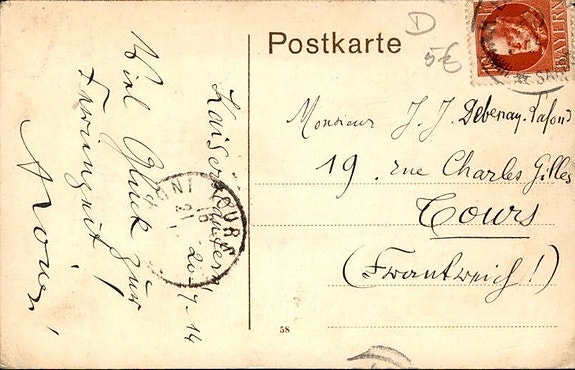 Postkarte
D
5€
BAYERN
Kaiserslautern
20/7-14
Viel Glück zur
Ferienzeit!
Monsieur J. J. Debenay-Lafond
19, rue Charles Gilles
Tours
(Frankreich!)
TOURS
58